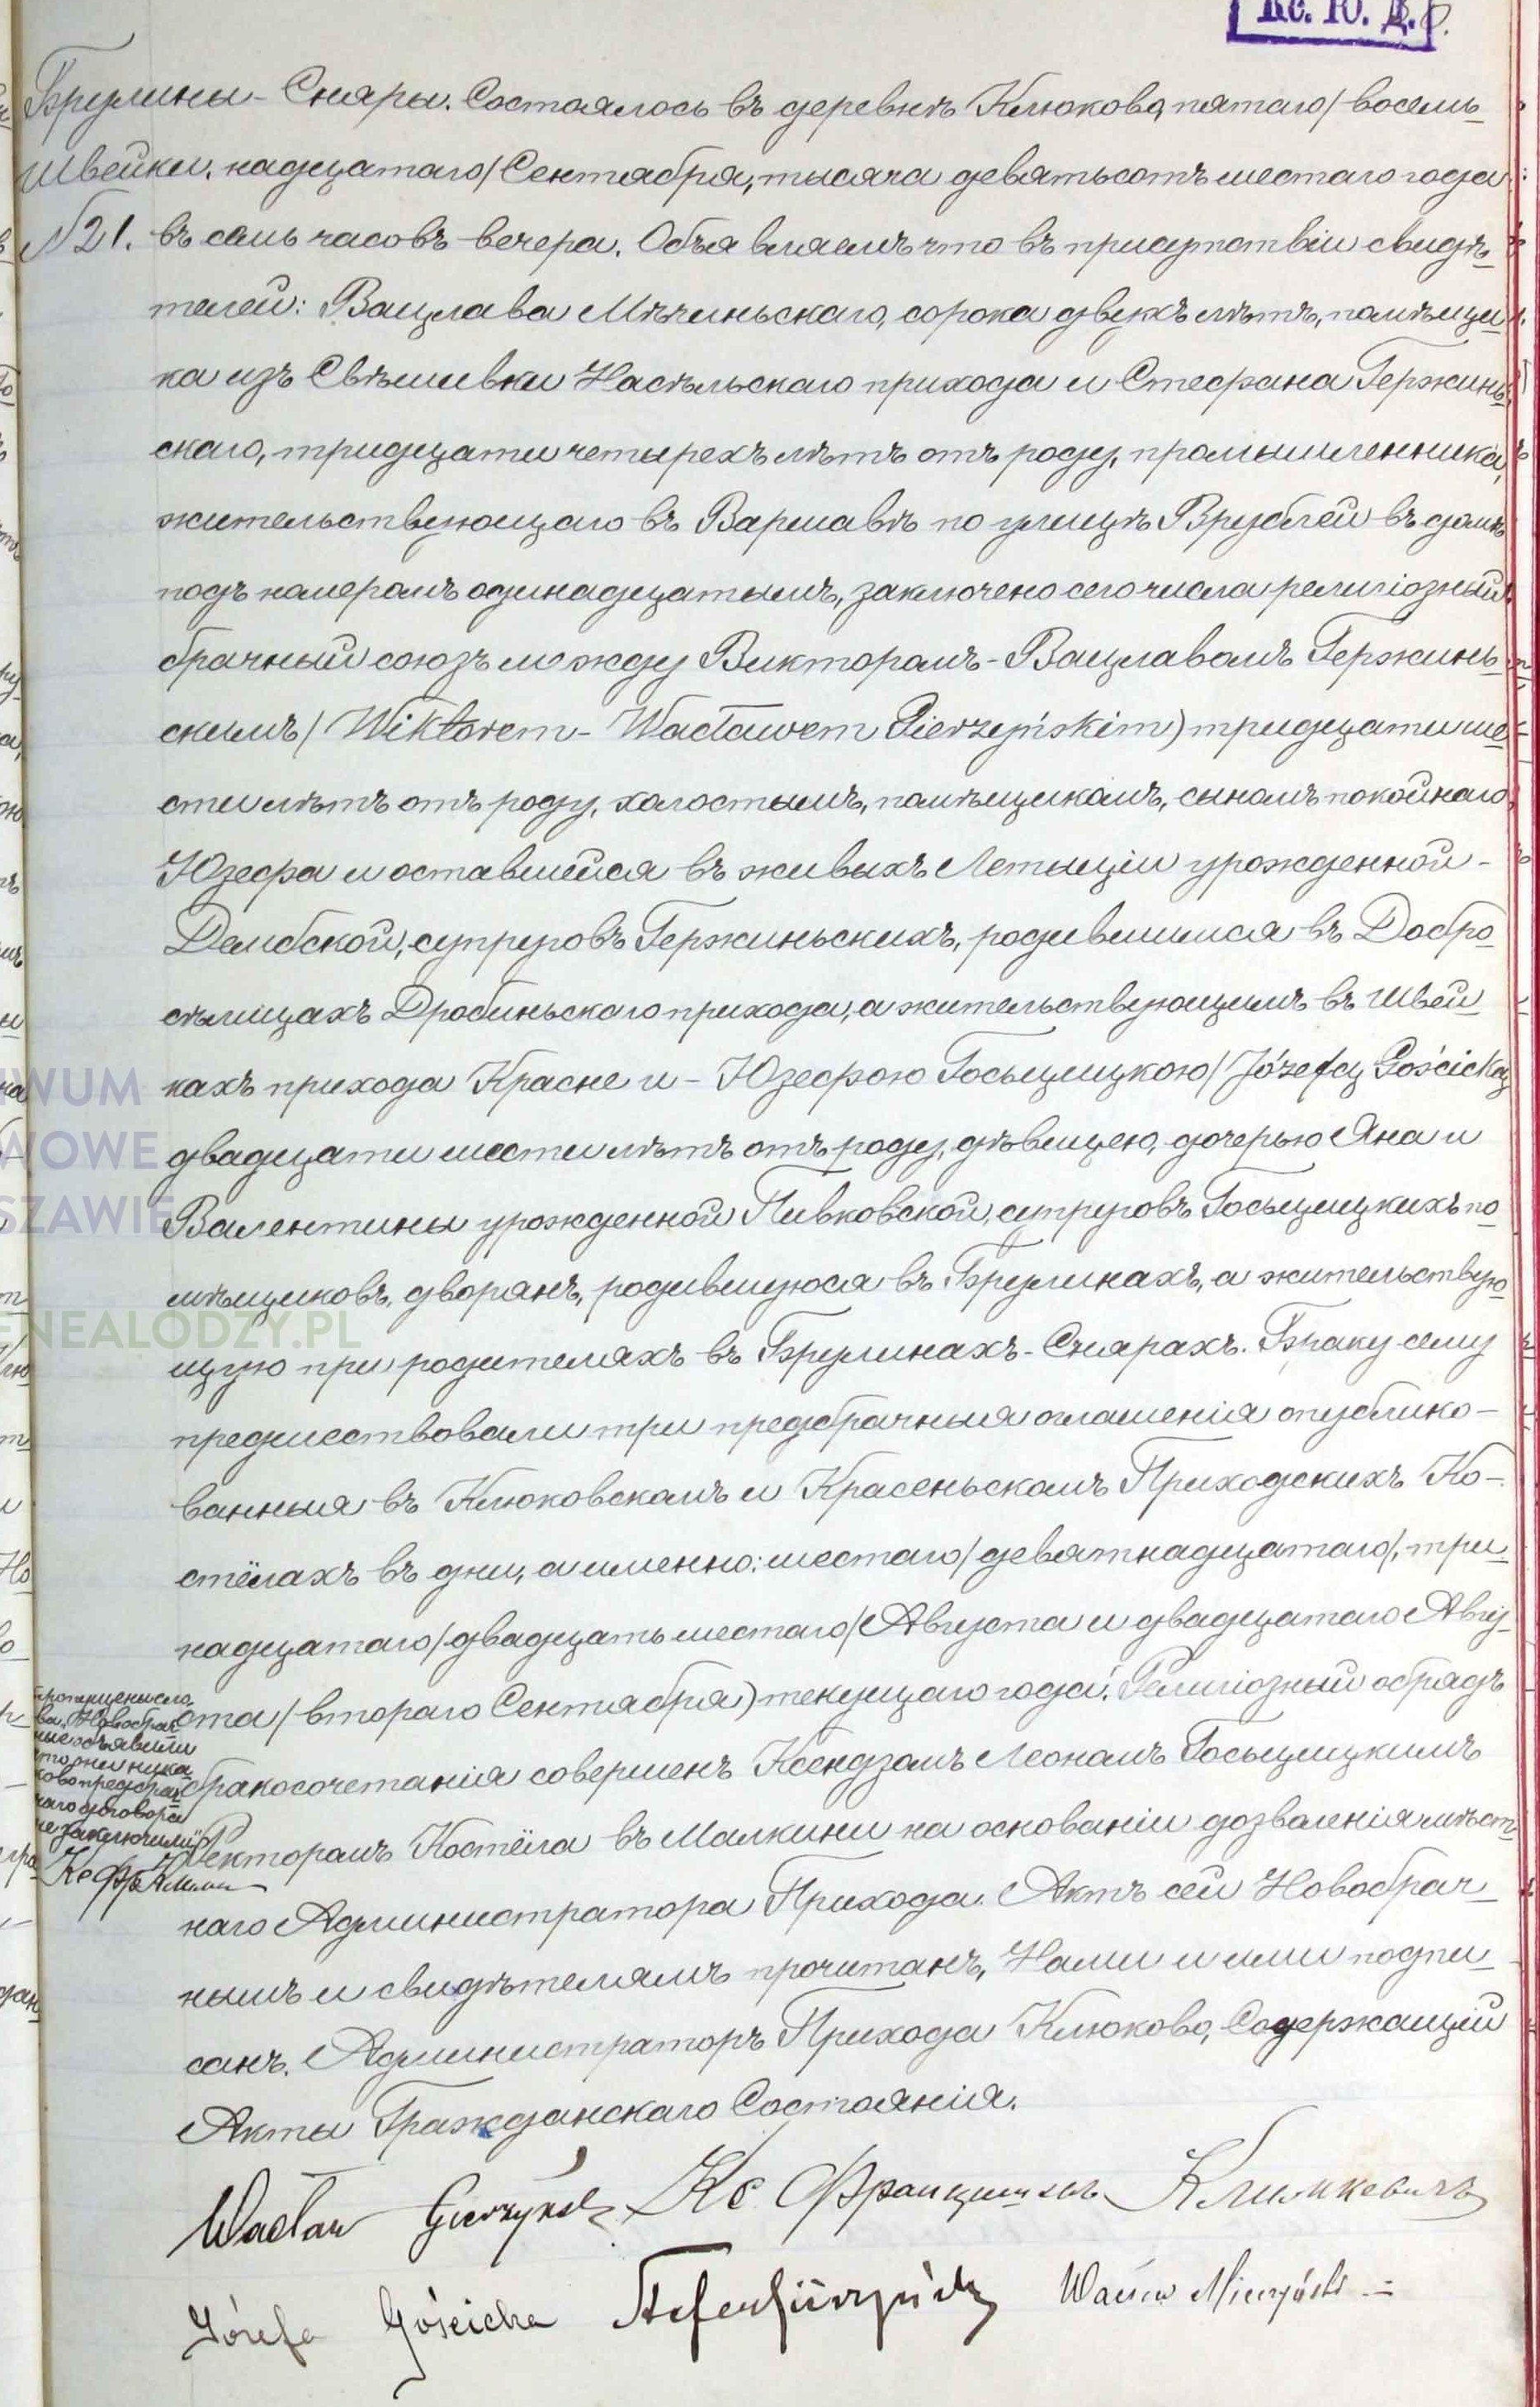 Кс. Ю. Д.
Брулины-Скяры. Состоялось въ деревнѣ Клюково, пятаго/восем-
Швейки. надцатаго/Сентября, тысяча девятьсотъ шестаго года
№21. въ семь часовъ вечера. Объявляемъ что въ присутствіи свидѣ-
телей: Вацлава Мѣчиньскаго, сорока двухъ лѣтъ, помѣщи-
ка изъ Свѣшивки Насѣльскаго прихода и Стефана Гержинь-
скаго, тридцати четырехъ лѣтъ отъ роду, промышленника,
жительствующаго въ Варшавѣ по улицѣ Врублей въ домѣ
подъ номеромъ одинадцатымъ, заключено сего числа религіозный
брачный союзъ между Викторомъ-Вацлавомъ Гержинь-
скимъ/Wiktorem-Wacławem Gierzyńskim) тридцати ше-
сти лѣтъ отъ роду, холостымъ, помѣщикомъ, сыномъ покойнаго
Юзефа и оставшейся въ живыхъ Летыціи урожденной-
Дембской, супруговъ Гержиньскихъ, родившимся въ Добро-
сѣлицахъ Дробиньскаго прихода, а жительствующимъ въ Швей-
кахъ прихода Красне и - Юзефою Госьцицкою/Józefą Gościcką
двадцати шести лѣтъ отъ роду, дѣвицею, дочерью Яна и
Валентины урожденной Пивковской, супруговъ Госьцицкихъ по-
мѣщиковъ, дворянъ, родившуюся въ Брулинахъ, а жительствую-
щую при родителяхъ въ Брулинахъ-Скярахъ. Браку сему
предшествовали три предбрачныя оглашенія опублико-
ванныя въ Клюковскомъ и Красеньскомъ Приходскихъ Ко-
стёлахъ въ дни, а именно: шестаго/девятнадцатаго/, три-
надцатаго/двадцать шестаго/Августа и двадцатаго Авгу-
ста/втораго Сентября) текущаго года. Религіозный обрядъ
бракосочетанія совершенъ Ксендзомъ Леономъ Госьцицкимъ
Ректоромъ Костёла въ Малкини на основаніи дозволенія мѣст-
наго Администратора Прихода. Актъ сей Новобрач-
нымъ и свидѣтелямъ прочитанъ, Нами и ими подпи-
санъ. Администраторъ Прихода Клюково, Содержащій
Акты Гражданскаго Состоянія.
пропущены сло
ва "Новобрач
ные объявили
что они ника
кого предбрач
наго договора
не заключили"
Кс Фр Климк
Wacław Gierzyński Кс Францишекъ Климкевичъ
Józefa Gościcka Stefan Gierzyński Wacław Mieczyński
IWUM
WOWE
SZAWIE
ENEALODZY.PL